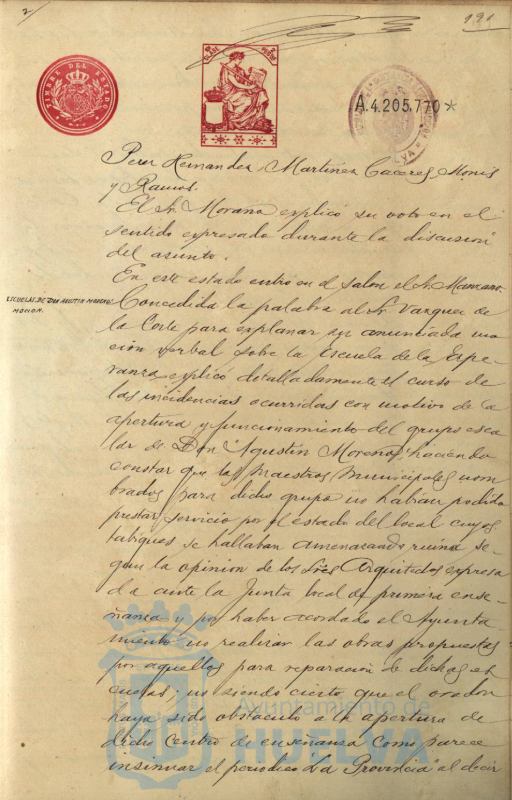 2/
191
TIMBRE DEL ESTADO
CLASE
A.4.205.770*
Perez Hernandez, Martinez Caceres, Monis
y Ramos.
El Sr. Moraño explicó su voto en el
sentido expresado durante la discusion
del asunto.
En este estado entro en el salon el Sr. Manzano.
ESCUELAS DE "DON AGUSTIN MORENO"
MOCION.
Concedida la palabra al Sr. Vazquez de
la Corte para explanar su anunciada mo
cion verbal sobre la Escuela de la Espe
ranza explicó detalladamente el curso de
las incidencias ocurridas con motivo de la
apertura y funcionamiento del grupo esco
lar de "Don Agustin Moreno" haciendo
constar que los Maestros Municipales nom
brados para dicho grupo no habian podido
prestar servicio por el estado del local cuyos
tabiques se hallaban amenazando ruina se
gun la opinion de los Sres Arquitectos expresa
da ante la Junta local de primera ense
ñanza y por haber acordado el Ayunta
miento no realizar las obras propuestas
por aquellos para reparacion de dichas es
cuelas; no siendo cierto que el orador
haya sido obstaculo a la apertura de
dicho Centro de enseñanza como parece
insinuar el periodico "La Provincia" al decir
Ayuntamiento de
HUELVA